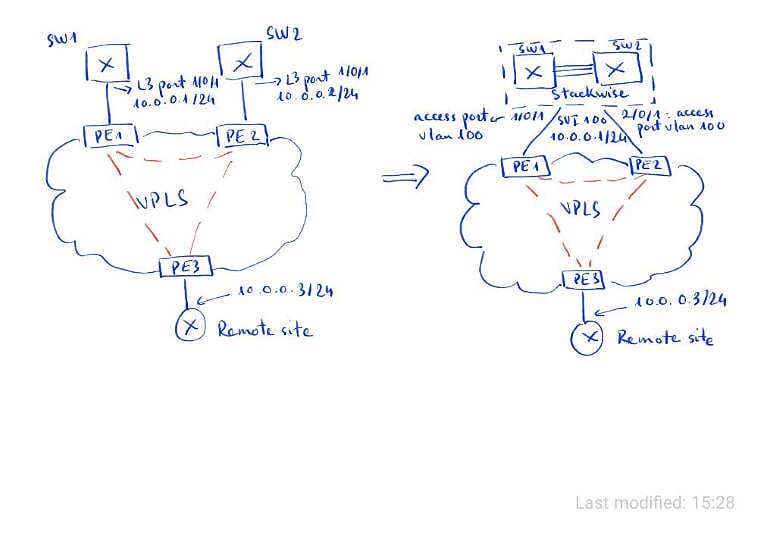 SW1
SW2
L3 port 1/0/1
10.0.0.1/24
L3 port 1/0/1
10.0.0.2/24
PE1
PE2
VPLS
PE3
10.0.0.3/24
Remote site
SW1
SW2
Stackwise
access port 1/0/1
vlan 100
SVI 100
10.0.0.1/24
2/0/1: access
port vlan 100
PE1
PE2
VPLS
PE3
10.0.0.3/24
Remote site
Last modified: 15:28